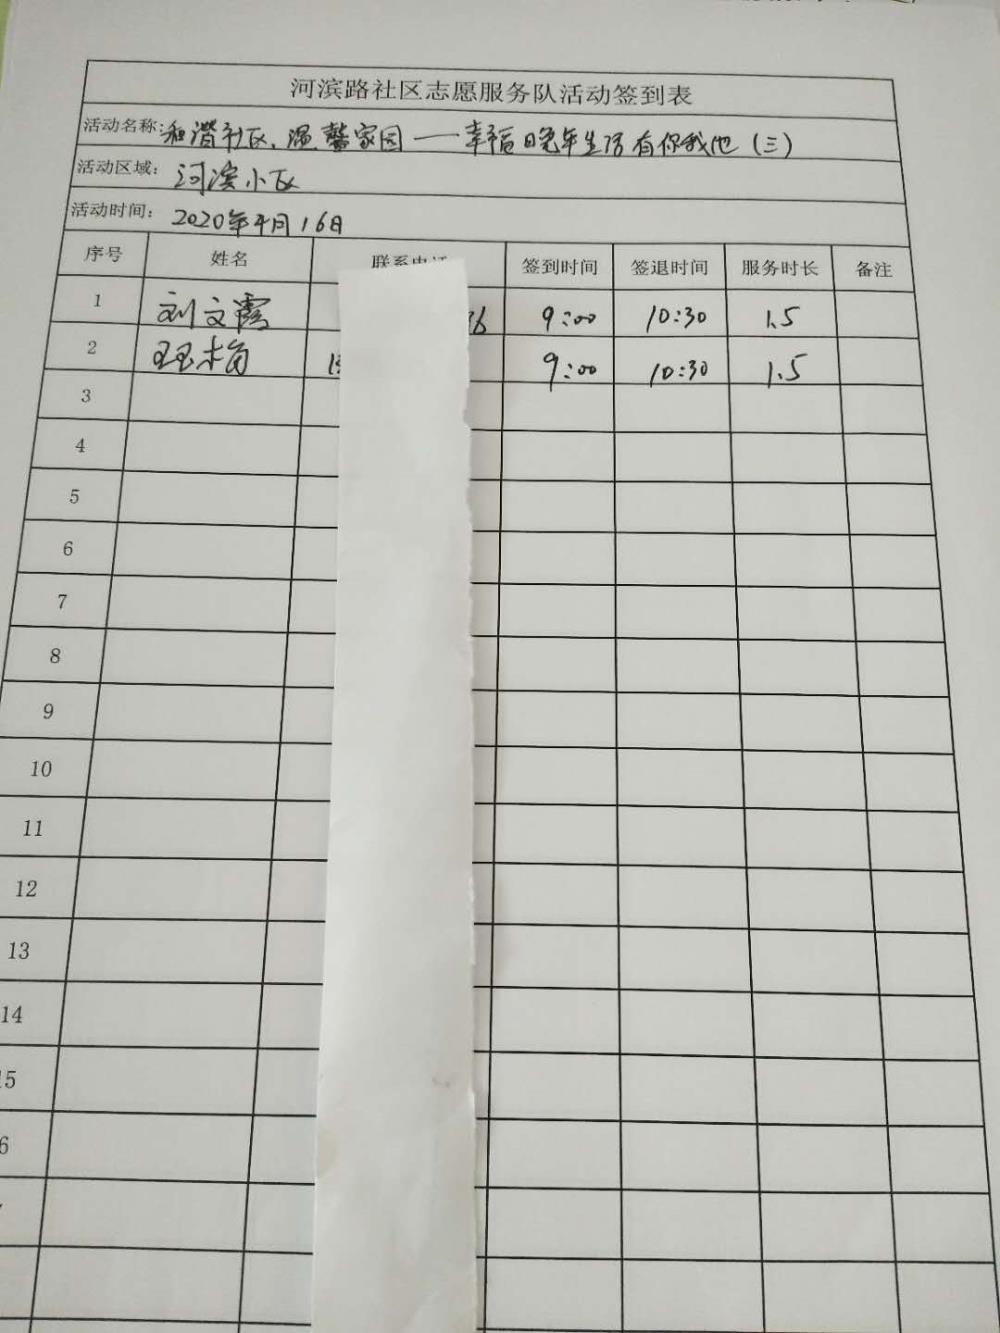 河滨路社区志愿服务队活动签到表
活动名称:和谐社区、温馨家园——幸福晚年生活有你我他(三)
活动区域: 河滨小区
活动时间: 2020年4月16日
序号 姓名 联系电话 签到时间 签退时间 服务时长 备注
1 刘文霞 36 9:00 10:30 1.5
2 9:00 10:30 1.5
3
4
5
6
7
8
9
10
11
12
13
14
15
6